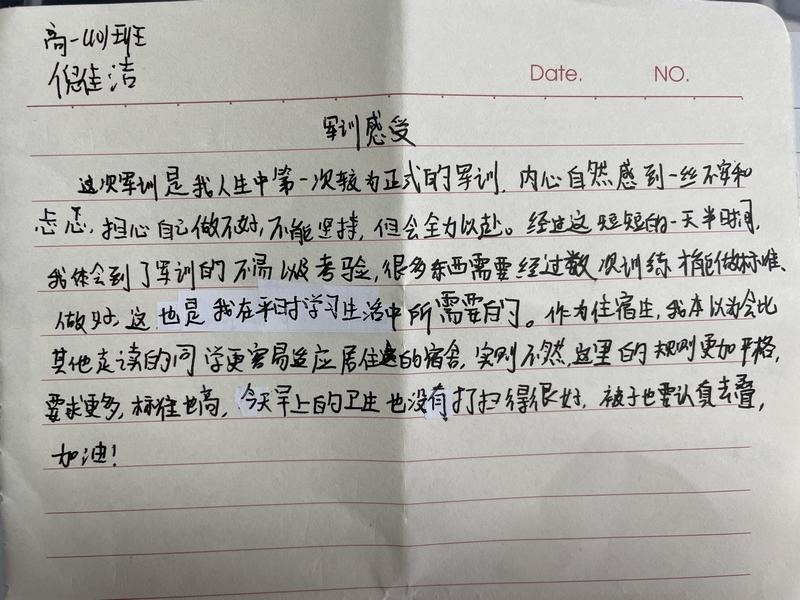 高一(10)班
倪佳洁
Date. NO.
军训感受
这次军训是我人生中第一次较为正式的军训，内心自然感到一丝不安和
忐忑，担心自己做不好，不能坚持，但会全力以赴。经过这短短的一天半时间，
我体会到了军训的不易以及考验，很多东西需要经过数次训练才能做标准、
做好，这也是我在平时学习生活中所需要的。作为住宿生，我本以为会比
其他走读的同学更容易适应居住的宿舍，实则不然，这里的规则更加严格，
要求更多，标准也高，今天早上的卫生也没有打扫得很好，被子也要认真去叠，
加油！